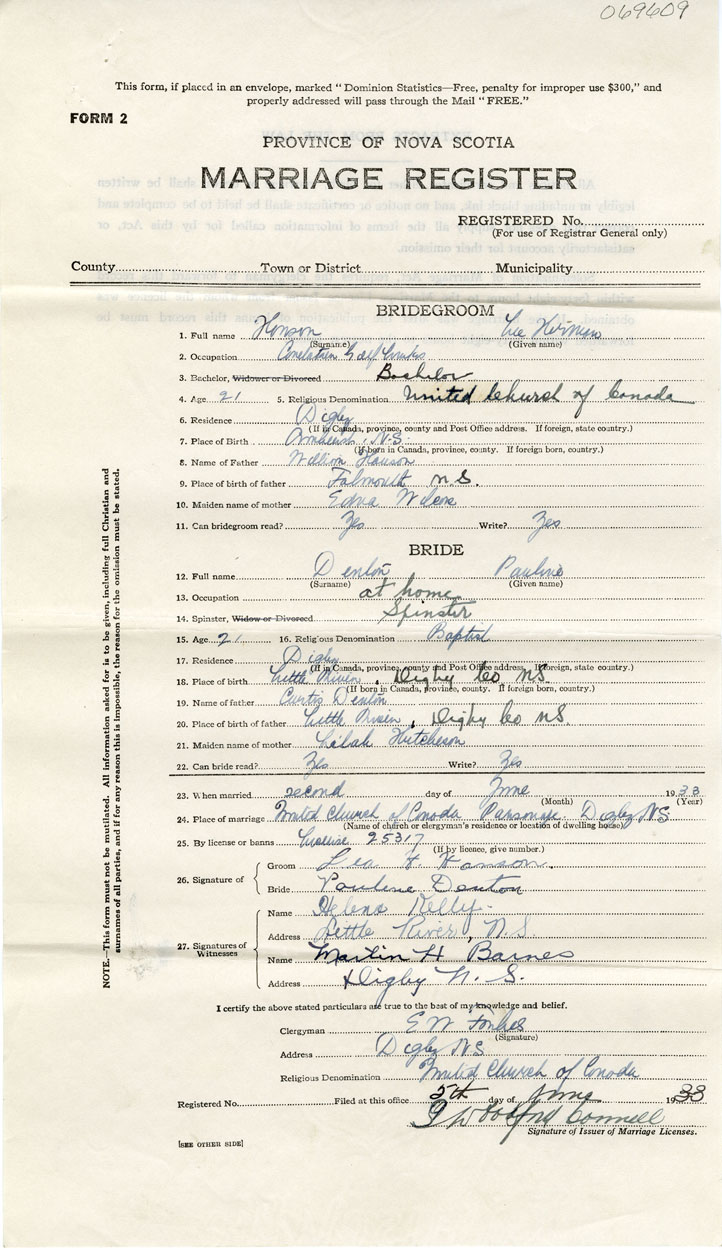 069609
This form, if placed in an envelope, marked "Dominion Statistics—Free, penalty for improper use $300," and
properly addressed will pass through the Mail "FREE."
FORM 2
PROVINCE OF NOVA SCOTIA
MARRIAGE REGISTER
REGISTERED No.
(For use of Registrar General only)
County Town or District Municipality
BRIDEGROOM
1. Full name Hanson Lee Herman
(Surname) (Given name)
2. Occupation Golf Links
3. Bachelor, Widower or Divorced Bachelor
4. Age 21 5. Religious Denomination United Church of Canada
6. Residence Digby
(If in Canada, province, county and Post Office address. If foreign, state country.)
7. Place of Birth Amherst, N.S.
(If born in Canada, province, county. If foreign born, country.)
8. Name of Father William Hanson
9. Place of birth of father Falmouth N.S.
10. Maiden name of mother Edna
11. Can bridegroom read? Yes Write? Yes
BRIDE
12. Full name Denton Pauline
(Surname) (Given name)
13. Occupation at home
14. Spinster, Widow or Divorced Spinster
15. Age 21 16. Religious Denomination Baptist
17. Residence Digby
(If in Canada, province, county and Post Office address. If foreign, state country.)
18. Place of birth Little River, Digby Co NS.
(If born in Canada, province, county. If foreign born, country.)
19. Name of father Curtis Denton
20. Place of birth of father Little River, Digby Co NS.
21. Maiden name of mother Lilah Hutcheson
22. Can bride read? Yes Write? Yes
23. When married second day of June 1933
(Month) (Year)
24. Place of marriage United Church of Canada Parsonage Digby NS
(Name of church or clergyman's residence or location of dwelling house)
25. By license or banns License 25317
(If by licence, give number.)
26. Signature of Groom Lee H Hanson.
Bride Pauline Denton
27. Signatures of Witnesses Name Helena Kelly
Address Little River, N.S
Name Martin H Barnes
Address Digby N.S.
I certify the above stated particulars are true to the best of my knowledge and belief.
Clergyman E W Forbes
(Signature)
Address Digby NS
Religious Denomination United Church of Canada
Registered No. Filed at this office 5th day of June 1933
Connell
Signature of Issuer of Marriage Licenses.
[SEE OTHER SIDE]
NOTE.—This form must not be mutilated. All information asked for is to be given, including full Christian and
surnames of all parties, and if for any reason this is impossible, the reason for the omission must be stated.